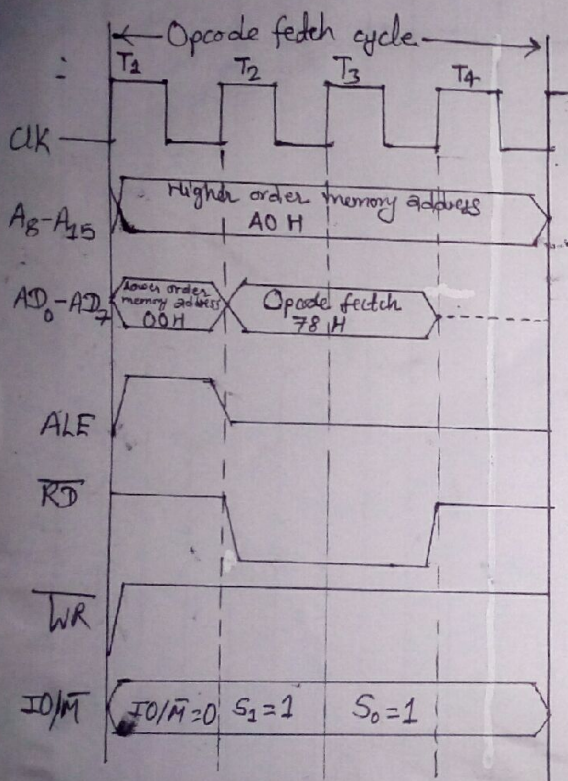 Opcode fetch cycle
T1 T2 T3 T4
CLK
Higher order memory address
A8-A15
A0 H
Lower order
memory address
AD0-AD7
Opcode fectch
00H
78 H
ALE
R̅D̅
W̅R̅
IO/M̅
IO/M̅=0 S1=1 S0=1